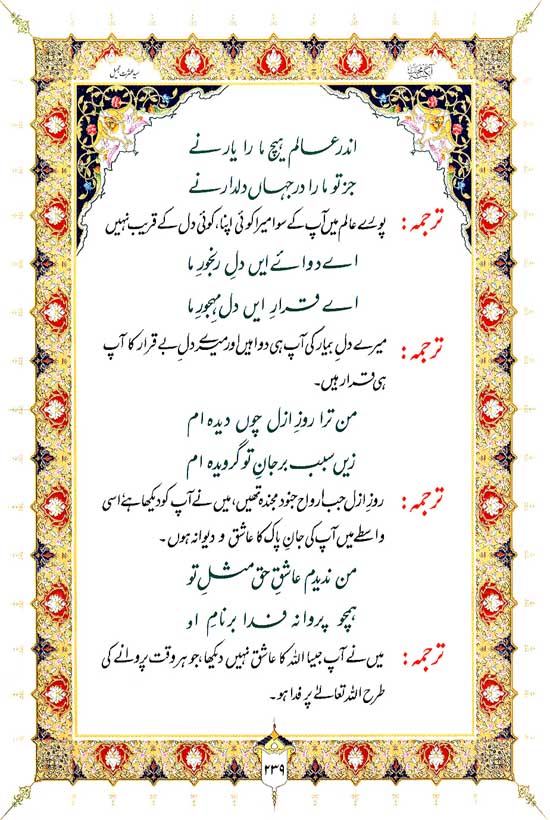 اندر عالم ہیچ ما را یار نے
جز تو ما را در جہاں دلدار نے
ترجمہ: پورے عالم میں آپ کے سوا میرا کوئی اپنا، کوئی دل کے قریب نہیں
اے دوائے ایں دلِ رنجورِ ما
اے قرارِ ایں دل مہجورِ ما
ترجمہ: میرے دلِ بیمار کی آپ ہی دوا ہیں اور میرے دلِ بے قرار کا آپ
ہی قرار ہیں۔
من ترا روزِ ازل چوں دیدہ ام
زیں سبب بر جانِ تو گرویدہ ام
ترجمہ: روزِ ازل جب ارواح جنود مجندہ تھیں، میں نے آپ کو دیکھا ہے اسی
واسطے میں آپ کی جانِ پاک کا عاشق و دیوانہ ہوں۔
من ندیدم عاشقِ حق مثلِ تو
ہمچو پروانہ فدا بر نامِ او
ترجمہ: میں نے آپ جیسا اللہ کا عاشق نہیں دیکھا، جو ہر وقت پروانے کی
طرح اللہ تعالیٰ پر فدا ہو۔
۲۳۹